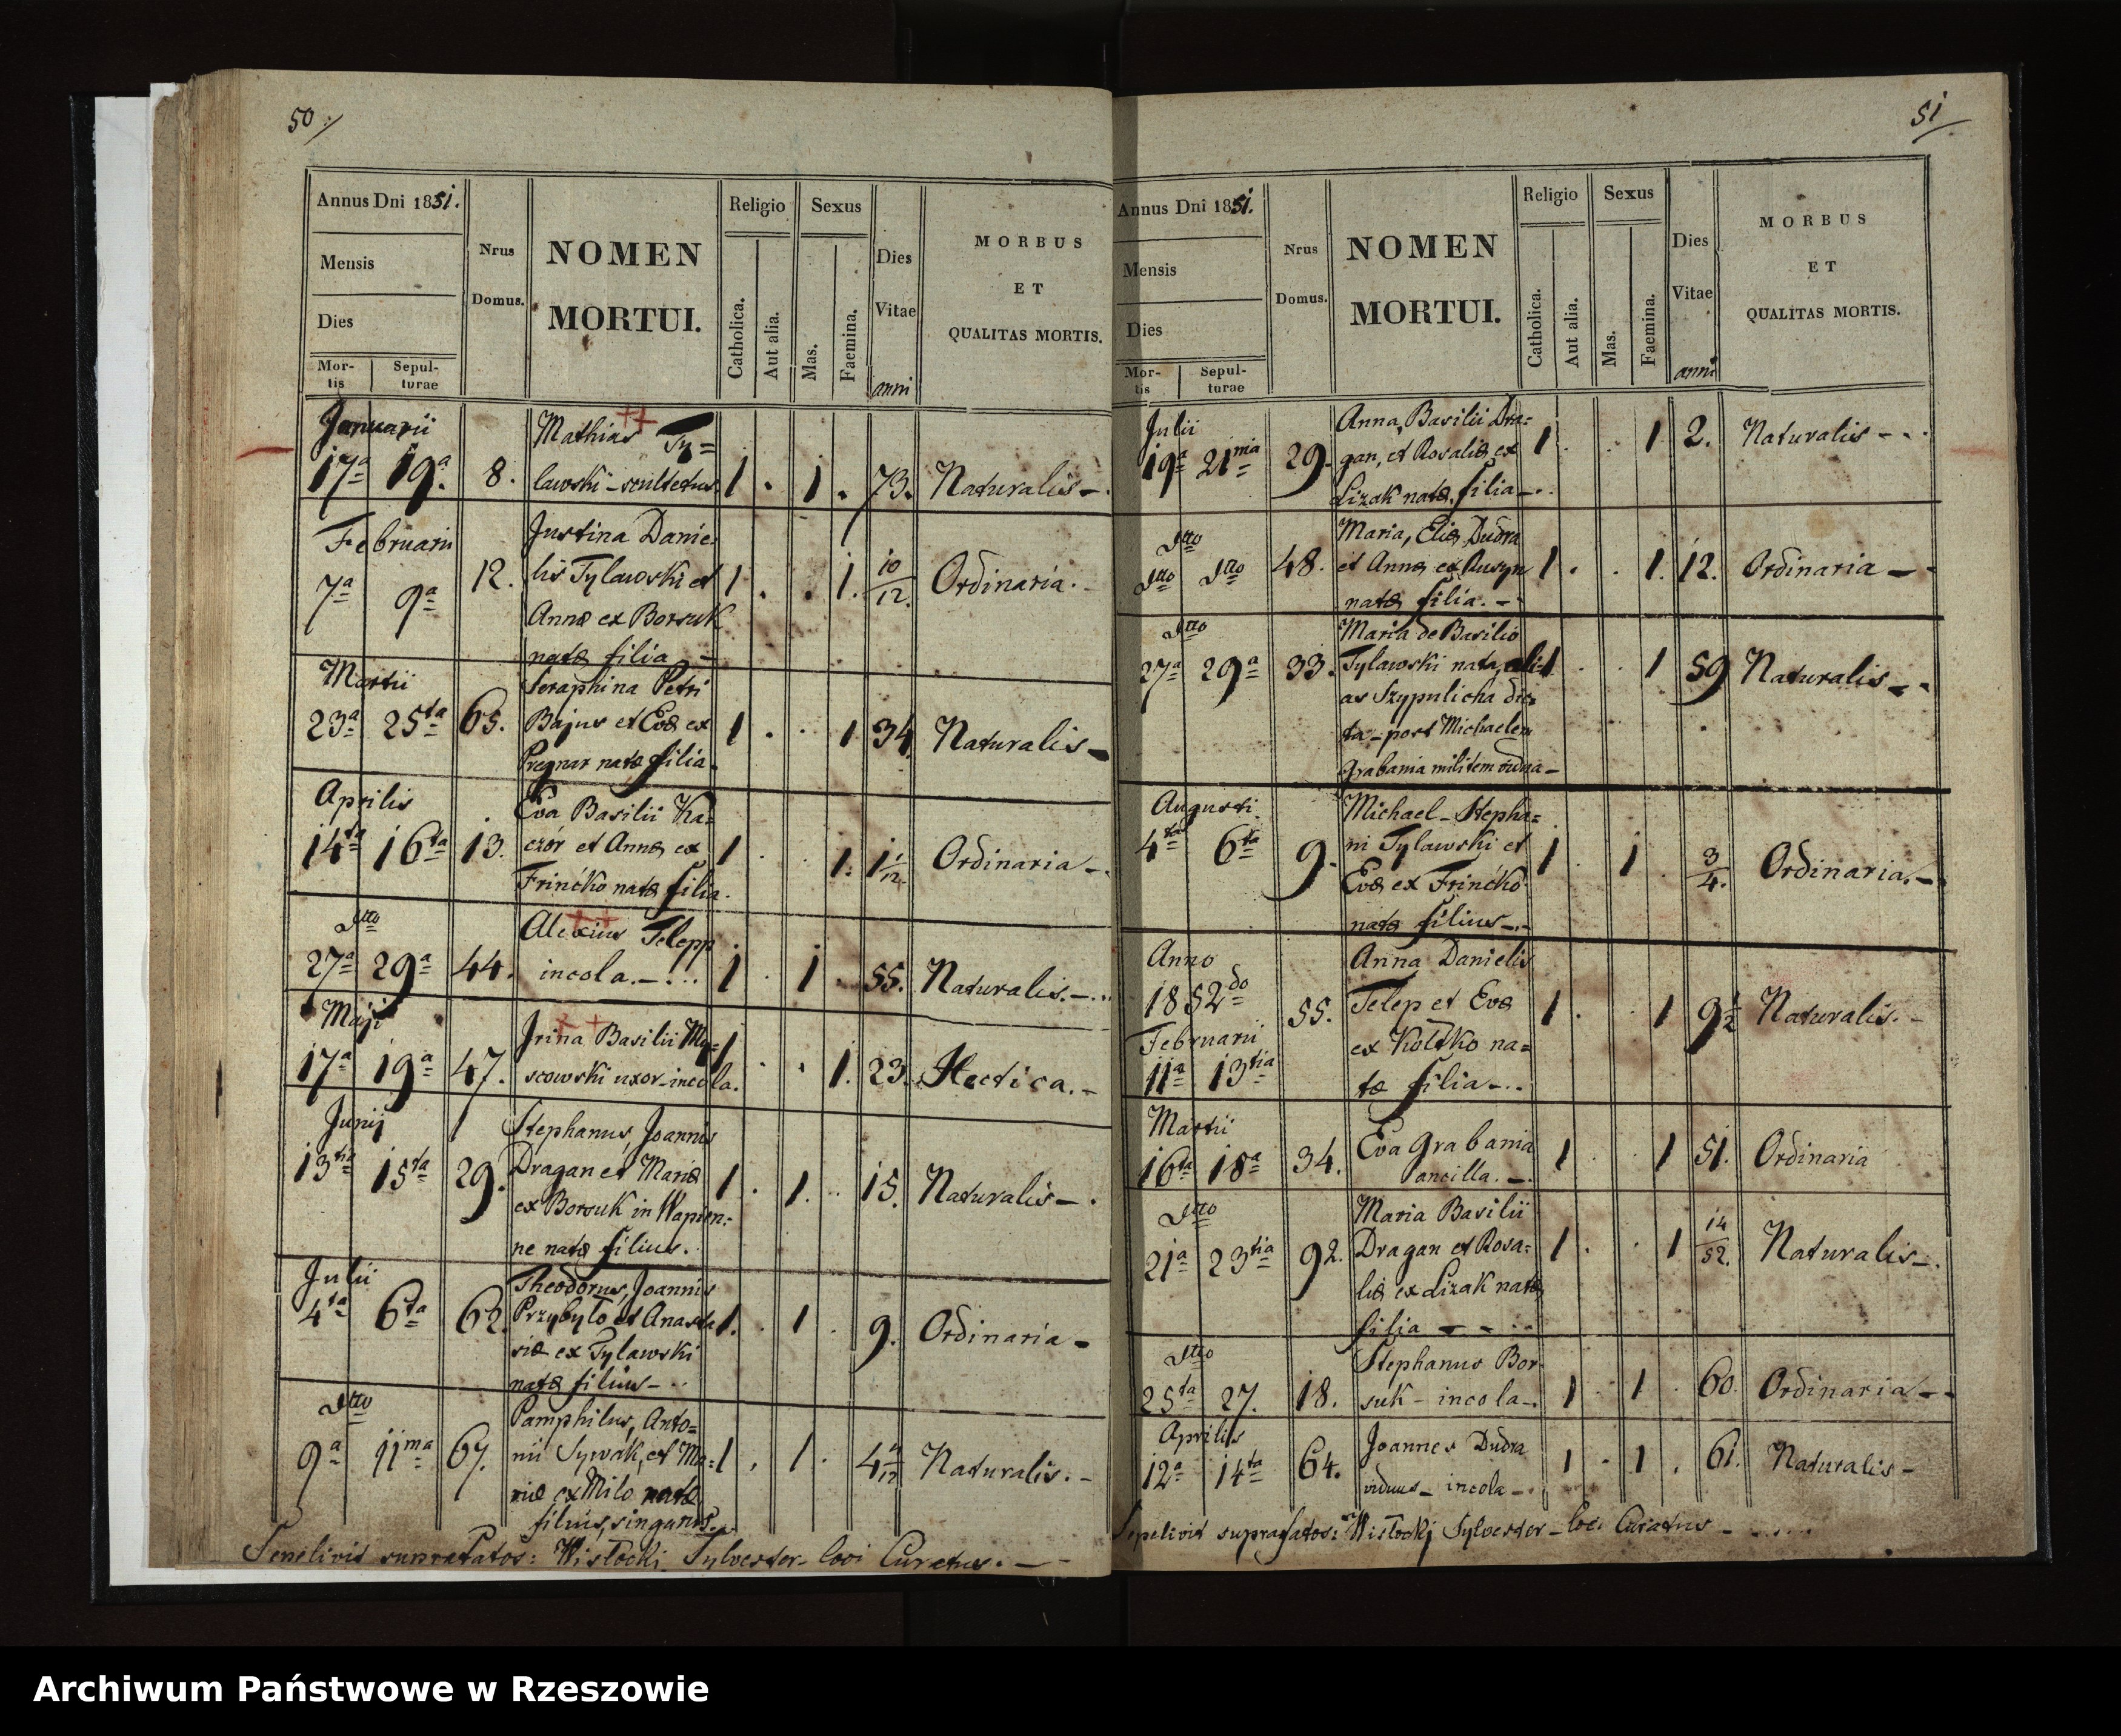 50./
Annus Dni 1851.
Mensis
Dies
Mor-
tis
Sepul-
turae
Nrus
Domus.
NOMEN
MORTUI.
Religio
Catholica.
Aut alia.
Sexus
Mas.
Faemina.
Dies
Vitae
anni
MORBUS
ET
QUALITAS MORTIS.
Januarii
17a 19a. 8. Mathias Ty=
lawski - scultetus 1 . 1 . 73. Naturalis -.
Februarii
7a 9a 12. Justina Danie
lis Tylawski et 1 . . 1. 10/12. Ordinaria. -
Annæ ex Borsuk
natæ filia -
Martii
23a 25ta 65. Seraphina Petri
Bajus et Evæ ex 1 . . 1 34 Naturalis -
Pregnar natæ filia.
Aprilis
14ta 16ta 13. Eva Basilii Ka=
czór et Annæ ex 1 . . 1. 1 1/12. Ordinaria -.
Frinćko natæ filia.
Dtto
27a 29a 44. Alexius Telepp
incola. - . . . 1 . 1 . 55. Naturalis. - . . .
Maji
17a 19a 47. Irina Basilii My=
scowski uxor - incola. 1 . . 1. 23. Hectica. -
Junij
13tia 15ta 29. Stephanus, Joannis
Dragan et Mariæ 1 . 1. . 15. Naturalis - .
ex Borsuk in Wapien:
ne natæ filius.
Julii
4ta 6ta 62. Theodorus, Joannis
Przybyło et Anasta 1. . 1 . 9. Ordinaria -
siæ ex Tylawski
natæ filius - . .
Dtto
9a 11ma 67. Pamphilus, Anto=
nii Sywak, et Ma= 1 . 1 . 4 4/12 Naturalis. -
riæ ex Milo natæ
filius, singarus.
Sepelivit suprafatos: Wisłocki Sylvester - loci Curatus. - -
51
Annus Dni 1851.
Mensis
Dies
Mor-
tis
Sepul-
turae
Nrus
Domus.
NOMEN
MORTUI.
Religio
Catholica.
Aut alia.
Sexus
Mas.
Faemina.
Dies
Vitae
anni
MORBUS
ET
QUALITAS MORTIS.
Julii
19a 21ma 29. Anna, Basilii Dra=
gan, et Rosaliæ ex 1 . . 1 2. Naturalis - - .
Lizak natæ filia - . .
Dtto
Dtto Dtto 48. Maria, Eliæ Dudra
et Annæ ex Rusyn 1 . . 1. 12. Ordinaria - -
natæ filia. -
Dtto
27a 29a 33. Maria de Basilio
Tylawski nata, ali= 1 . . 1 59 Naturalis - -
as Szypulicha dic=
ta - post Michaelem
Grabania militem vidua -
Augusti
4ta 6ta 9. Michael - Stepha=
ni Tylawski et 1 . 1 . 3/4. Ordinaria. -
Evæ ex Frinćko
natæ filius - . -
Anno
1852do
Februarii
11a 13tia 55. Anna Danielis
Telep et Evæ 1 . . 1 9 1/2 Naturalis. -
ex Koltko na=
tæ filia - . .
Martii
16ta 18a 34. Eva Grabania
ancilla. - . 1 . . 1 51. Ordinaria
Dtto
21a 23tia 92. Maria Basilii
Dragan et Rosa= 1 . . 1 14/52. Naturalis - .
liæ ex Lizak natæ
filia - - . .
Dtto
25ta 27. 18. Stephanus Bor
suk - incola - . 1 . 1 . 60. Ordinaria - -
Aprilis
12a 14ta 64. Joannes Dudra
viduus - incola - . 1 . 1 . 61. Naturalis -
Sepelivit suprafatos: Wisłockj Sylvester - loci Curatus - . . . . .
Archiwum Państwowe w Rzeszowie